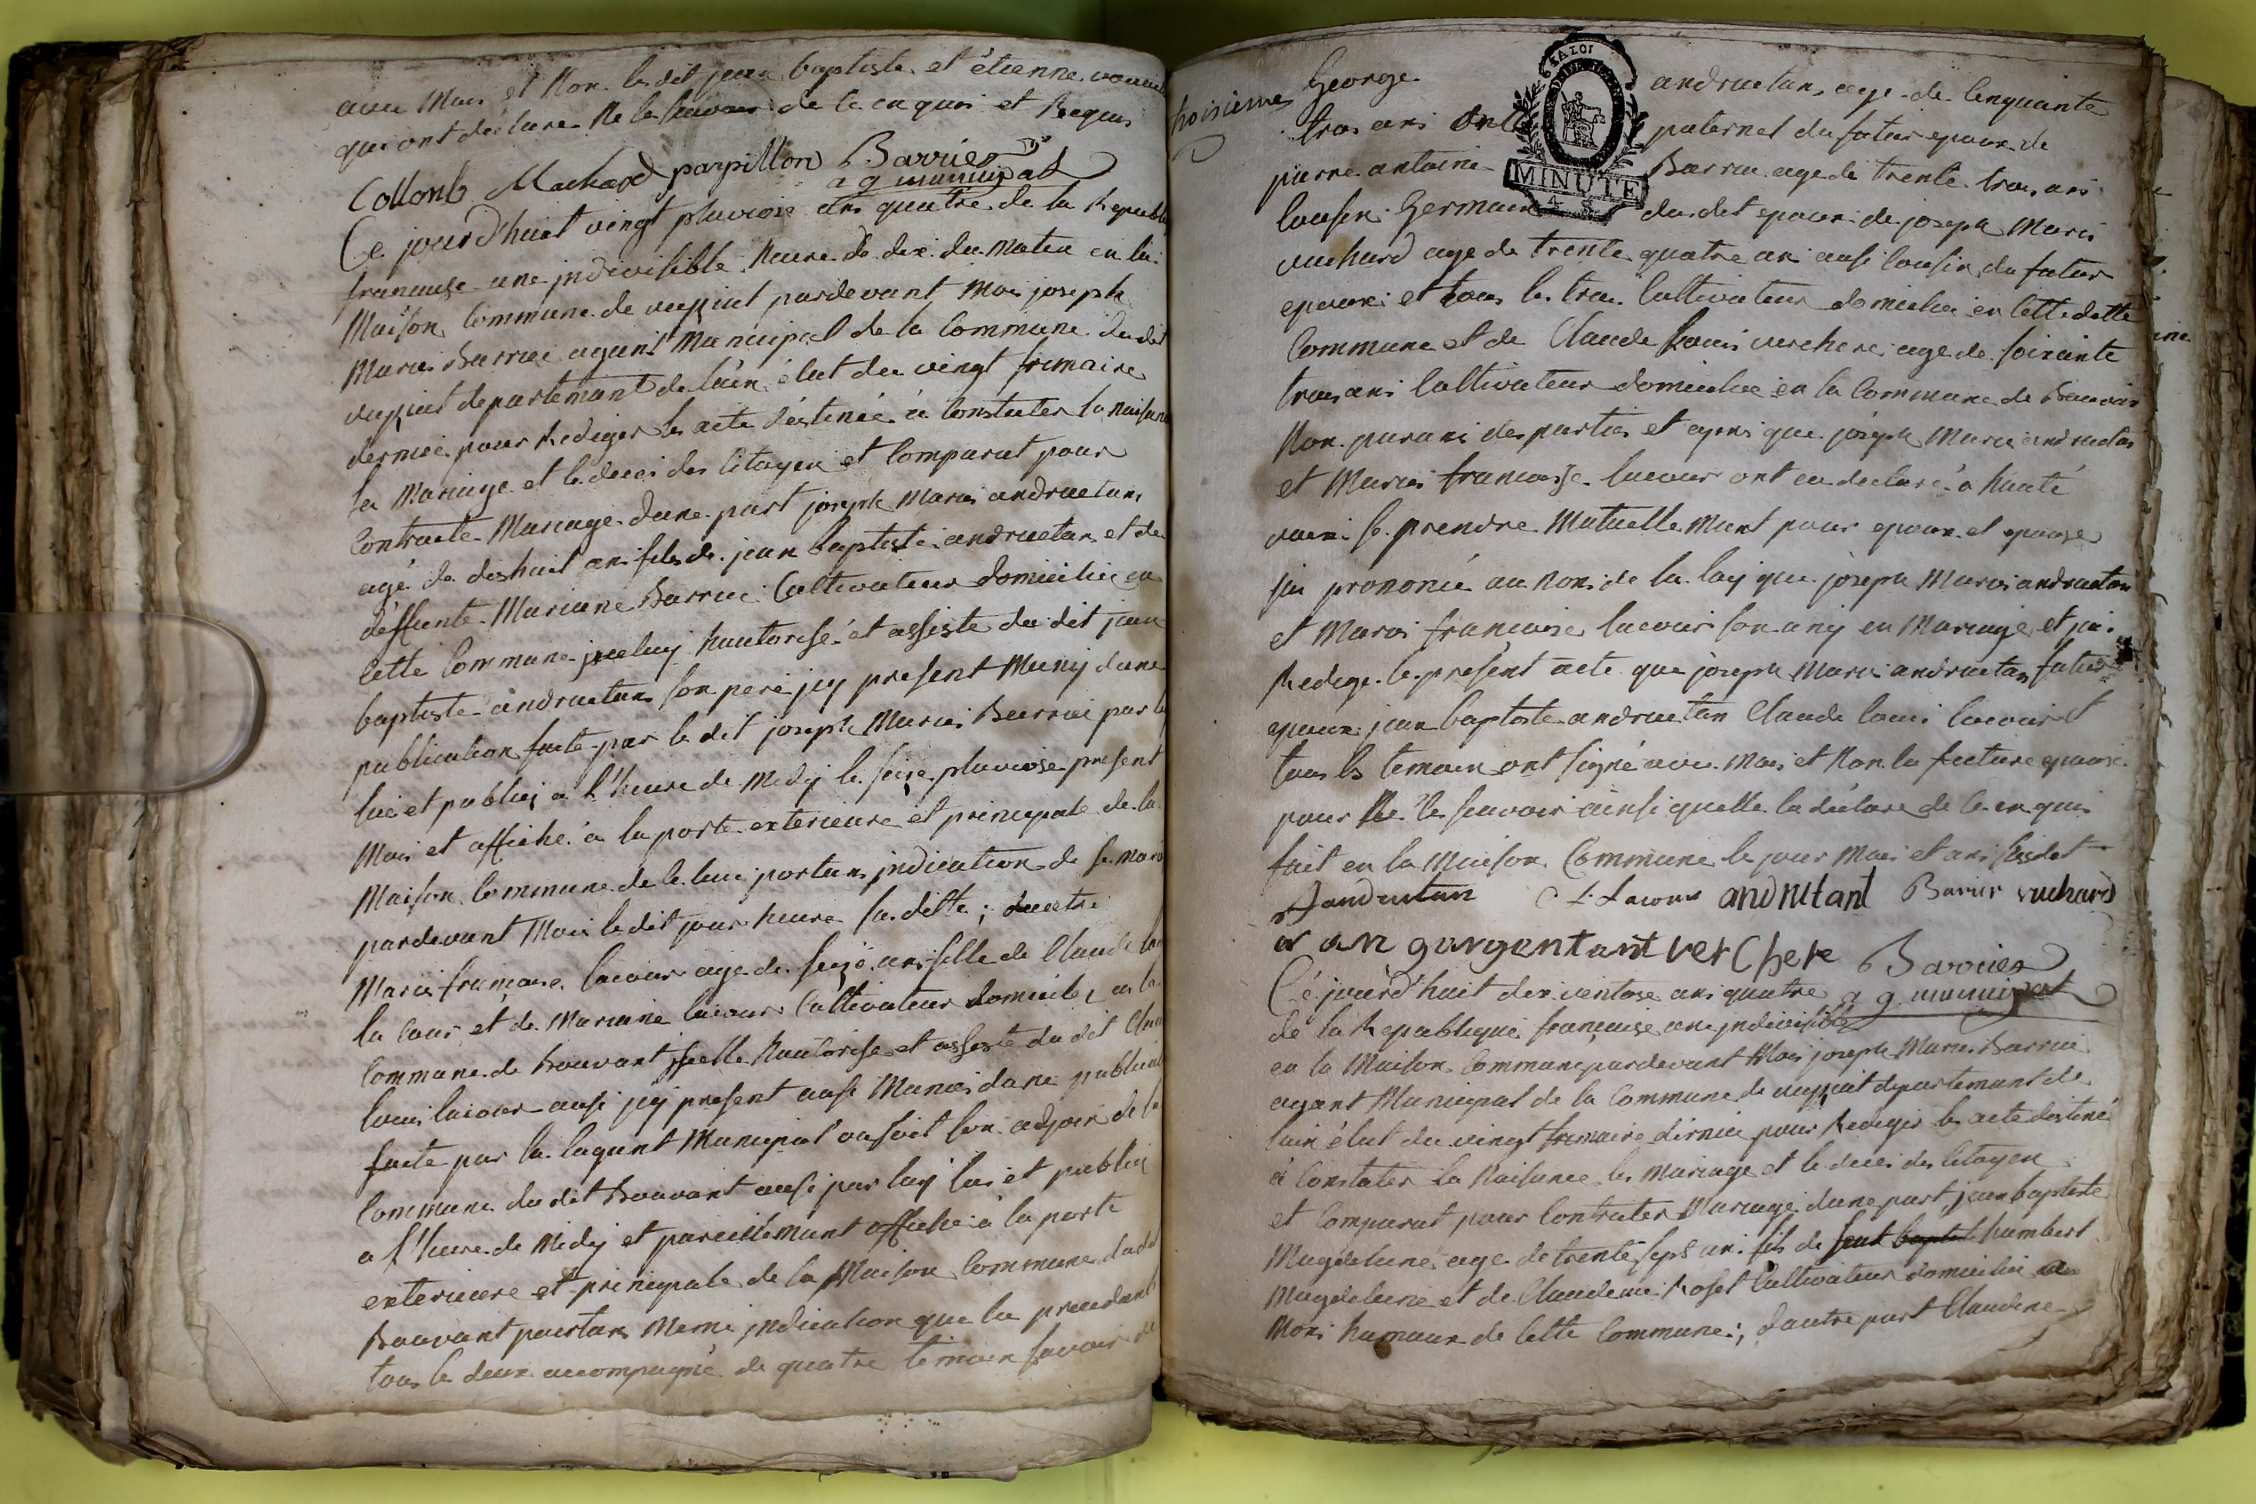 avec Moi et Non les dit jean baptiste et étienne
qui ont déclare Ne le savoir de ce enquis et Requis
Collomb Machard parpillon Barrier
ag municipal
Ce jourd'huit vingt pluviose ans quatre de la Republi
francaise une jndivisible heure de dix du Matin en la
Maison Commune de pardevant Moi joseph
Marie Barrier agant Municipal de la Commune du dit
departemant de lain élut du vingt frimaire
dernie pour Rediger les acte déstinée a Constater la naisanc
le Mariage et le deces des Citoyen et Comparut pour
Contracte Mariage dune part joseph Marie andruetan
agé de dishuit ans fils de jean baptiste andruetan et de
deffunte Mariane Barrie Cultivateur domicilie en
Cette Commune jceluy hautorisé et assiste du dit jean
baptiste andruetan son pere jcy present Muny dune
publication faite par le dit joseph Marie Barrie par lu
lue et publiez a l'heure de Midy le seize pluviose present
Mois et affiché a la porte exterieure et principale de la
Maison Commune de ce lieu portans jndication de se
pardevant Moi ledit jour heure sudite ; dautre
Marie francoise lacour age de seize ans fille de Claude
la Cour et de Mariane lacour Cultivateur domicile en la
Commune de Bouvant jcelle hautorise et assiste du dit
louis lacour ausi jcy present ausi Munie dune publicati
faite par la lagant Municipal ou soit son adjoin de la
Commune du dit Bouvant ausi par luy lue et publiez
a l'heure de Midy et pareillemant affiche a la porte
exterieure et principale de la Maison Commune dudit
Bouvant portans Meme jndication que la precedant
tous les deux accompagné de quatre temoin savoir de
troisieme
George andruetan age de Cinquante
trois ans oncle paternel du futur epoux de
pierre antoine Barrie age de trente trois ans
Cousin Germain du dit epoux de joseph Marie
vuchard age de trente quatre an ausi Cousin du futur
epoux et tous les trois Cultivateur domicilie en Cette ditte
Commune et de Claude louis verchere age de soixante
trois ans Cultivateur domicilie en la Commune de Bouvan
Non parans des parties et apres que joseph Marie andruetan
et Marie francoise lacour ont eu declaré a haute
voix se prendre Mutuelle Mant pour epoux et epouse
jai prononcé au Nom de la loy que joseph Marie andruetan
et Marie francoise lacour son uny en Mariage et jai
Redige le present acte que joseph Marie andruetan futur
epoux jean baptiste andruetan Claude louis lacour et
tous les temoin ont signé avec Moi et Non la future epouse
pour Ne le savoir ainsi quelle la déclare de ce enquis
fait en la Maison Commune le jour Mois et ans susdit
andruetan lacour andrutant Barrier vuchard
verchere Barrier
ag municipal
Cé jourd'huit dix ventose ans quatre
de la Republique francaise une jndivisible
en la Maison Commune pardevant Moi joseph Marie Barrie
agant Municipal de la Commune de departemant de
lain élut du vingt frimaire dernie pour Rediger les acte destiné
a Constater la Naisance les Mariage et le deces des Citoyen
et Comparut pour Contracter Mariage dune part jean baptiste
Magdelaine age de trente sept ans fils de humbert
Magdelaine et de Claudine Roset Cultivateur domicilie
hamaux de Cette Commune ; dautre part Claudine
MINUTE